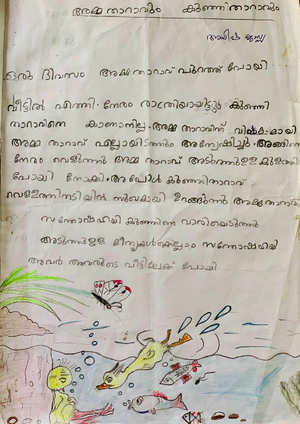 അമ്മതാറാവും കുഞ്ഞിതാറാവും
ഒരു ദിവസം അമ്മ താറാവ് പുറത്ത് പോയി
വീട്ടിൽ എത്തി. നേരം രാത്രിയായിട്ടും കുഞ്ഞി
താറാവിനെ കാണാനില്ല. അമ്മ താറാവിന് വിഷമമായി
അമ്മ താറാവ് എല്ലായിടത്തും അന്വേഷിച്ചു. അങ്ങനെ
നേരം വെളുത്തു അമ്മ താറാവ് അടുത്തുള്ള കുളത്തിൽ
പോയി നോക്കി. അപ്പോൾ കുഞ്ഞിതാറാവ്
വെള്ളത്തിനടിയിൽ സുഖമായി ഉറങ്ങുന്നു അമ്മതാറാവ്
സന്തോഷമായി കുഞ്ഞിനെ വാരിയെടുത്തു
അടുത്തുള്ള മീനുകൾക്കെല്ലാം സന്തോഷമായി
അവർ അവരുടെ വീട്ടിലേക്ക് പോയി